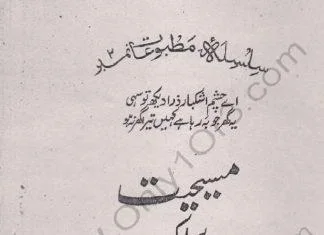 سلسلۂ مطبوعات نمبر ۳
اے چشم اشکبار ذرا دیکھ تو سہی
یہ گھر جو بہ رہا ہے کہیں تیرا گھر نہ ہو
مسیحیت
Only1Or3.com